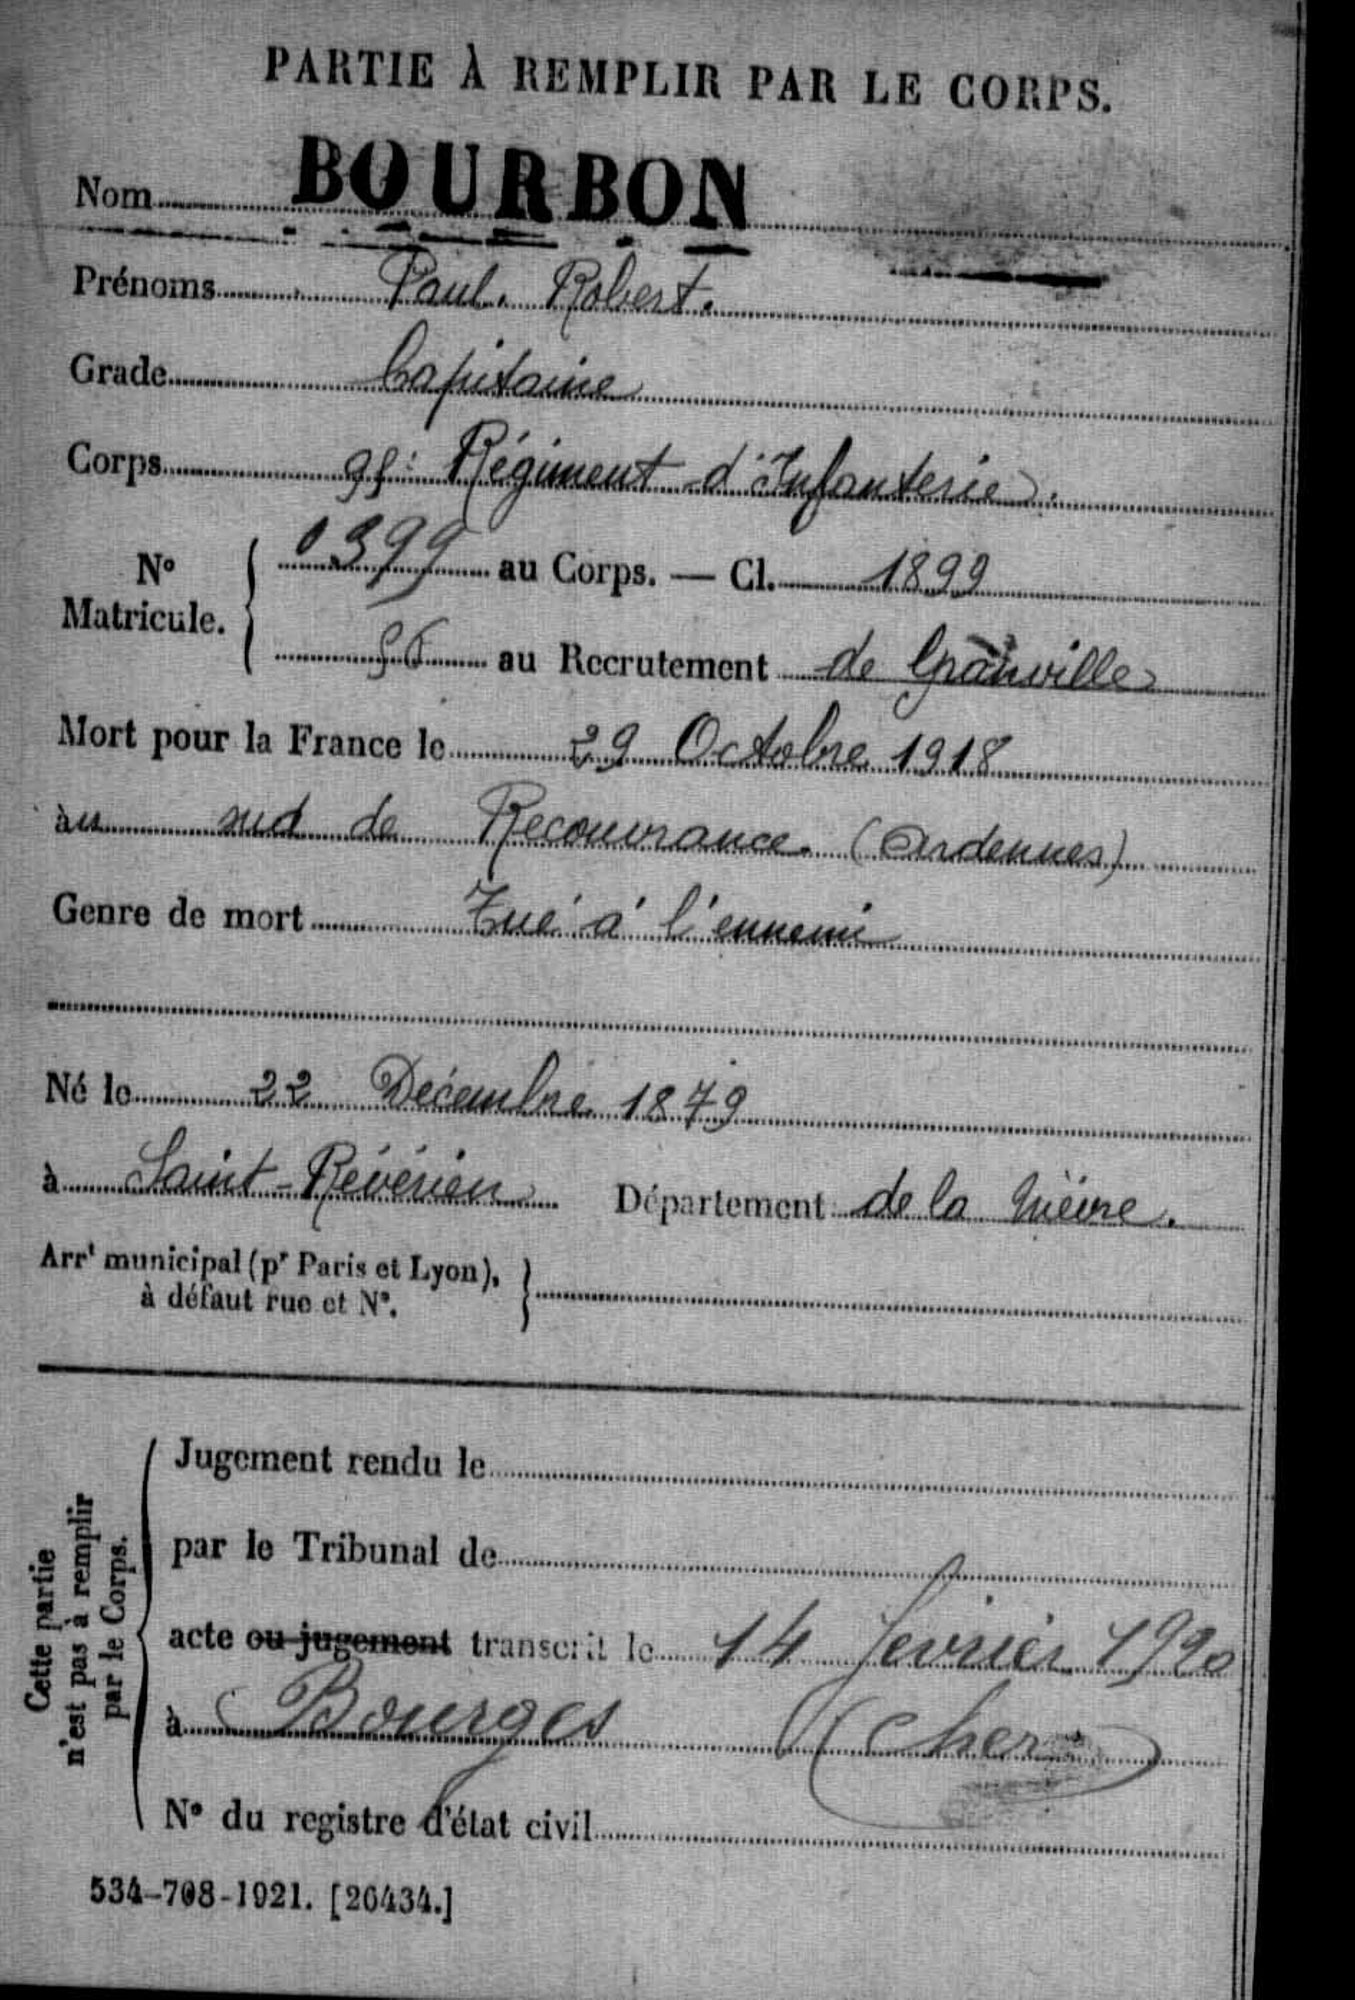 PARTIE À REMPLIR PAR LE CORPS.
Nom BOURBON
Prénoms Paul. Robert.
Grade Capitaine
Corps Régiment d'Infanterie.
N° Matricule. 0399 au Corps. — Cl. 1899
au Recrutement de Granville
Mort pour la France le 29 Octobre 1918
au sud de Recouvrance. (Ardennes)
Genre de mort Tué à l'ennemi
Né le 22 Décembre 1879
à Saint-Révérien Département de la Nièvre.
Arrt municipal (pr Paris et Lyon),
à défaut rue et N°.
Cette partie
n'est pas à remplir
par le Corps.
Jugement rendu le
par le Tribunal de
acte ou jugement transcrit le 14 février 1920
à Bourges (Cher)
N° du registre d'état civil
534-708-1921. [26434.]